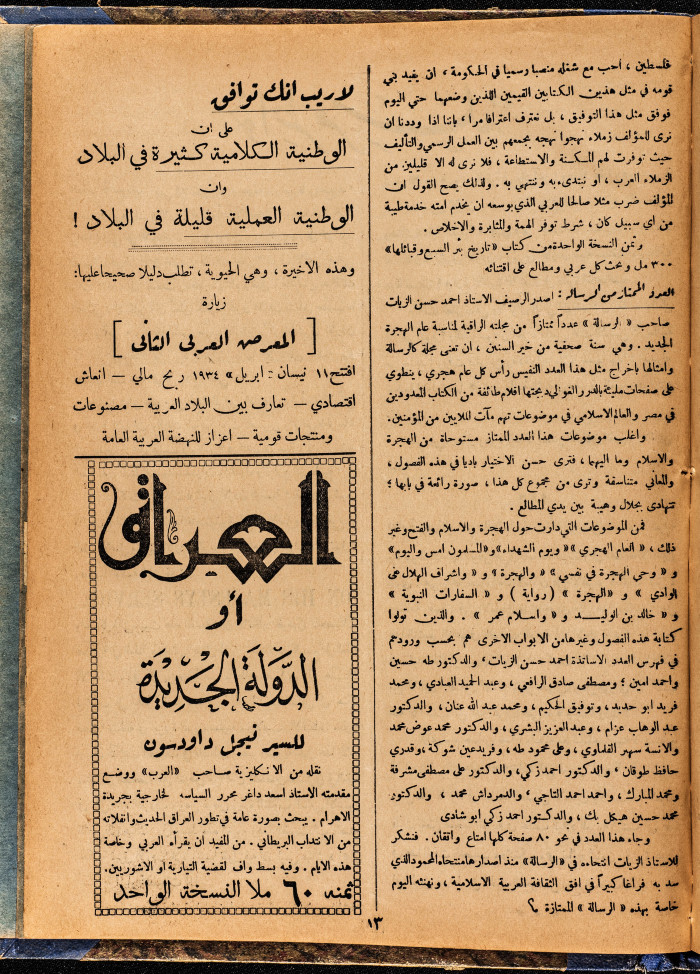 فلسطين ، أحب مع شغله منصباً رسمياً في الحكومة ، ان يفيد بني
قومه في مثل هذين الكتابين القيمين اللذين وضعهما حتى اليوم
فوفق مثل هذا التوفيق ، بل نعترف اعترافا مرا ، باننا اذا وددنا ان
نرى للمؤلف زملاء نهجوا نهجه بجمعهم بين العمل الرسمي والتأليف
حيث توفرت لهم المكنة والاستطاعة ، فلا نرى له الا قليلين من
الزملاء العرب ، او نبتدىء به وننتهي به . ولذلك يصح القول ان
المؤلف ضرب مثلا صالحا للعربي الذي بوسعه ان يخدم امته خدمة طيبة
من اي سبيل كان ، شرط توفر الهمة والمثابرة والاخلاص .
وثمن النسخة الواحدة من كتاب «تاريخ بئر السبع وقبائلها»
٣٠٠ مل ونحث كل عربي ومطالع على اقتنائه
العدد الممتاز من الرسالة : اصدر الرصيف الاستاذ احمد حسن الزيات
صاحب « الرسالة » عدداً ممتازاً من مجلته الراقية لمناسبة عام الهجرة
الجديد . وهي سنة صحفية من خير السنن ، ان تعنى مجلة كالرسالة
وامثالها باخراج مثل هذا العدد النفيس رأس كل عام هجري ، ينطوي
على صفحات مليئة بالدرر الغوالي دبجتها اقلام طائفة من الكتاب المعدودين
في مصر والعالم الاسلامي في موضوعات تهم مآت الملايين من المؤمنين.
واغلب موضوعات هذا العدد الممتاز مستوحاة من الهجرة
والاسلام وما اليهما ، فترى حسن الاختيار باديا في هذه الفصول ،
والمعاني متناسقة وترى من مجموع كل هذا ، صورة رائعة في بابها ؛
تتهادى بجلال وهيبة بين يدي المطالع .
فمن الموضوعات التي دارت حول الهجرة والاسلام والفتح وغير
ذلك ، « العام الهجري » « ويوم الشهداء » و «المسلمون امس واليوم»
و « وحي الهجرة في نفسي » « والهجرة » و « واشراف الهلال على
الوادي » و « الهجرة » ( رواية ) و « السفارات النبوية »
و « خالد بن الوليد » و « واسلام عمر » . والذين تولوا
كتابة هذه الفصول وغيرها من الابواب الاخرى هم بحسب ورودهم
في فهرس العدد الاساتذة احمد حسن الزيات ، والدكتور طه حسين
واحمد امين ؛ ومصطفى صادق الرافعي ، وعبد الحميد العبادي ، ومحمد
فريد ابو حديد ، وتوفيق الحكيم ، ومحمد عبد الله عنان ، والدكتور
عبد الوهاب عزام ، وعبد العزيز البشري ، والدكتور محمد عوض محمد
والآنسة سهير القلماوي ، وعلي محمود طه ، وفريد عين شوكة ، وقدري
حافظ طوقان ، والدكتور احمد زكي ، والدكتور علي مصطفى مشرفة
ومحمد المبارك ، واحمد احمد التاجي ، والدمرداش محمد ، والدكتور
محمد حسين هيكل بك ، والدكتور احمد زكي ابو شادى
وجاء هذا العدد في نحو ٨٠ صفحة كلها امتاع واتقان . فنشكر
للاستاذ الزيات انتحاءه في «الرسالة» منذ اصدارها منتحاه المحمود الذي
سد به فراغا كبيراً في افق الثقافة العربية الاسلامية ، ونهنئه اليوم
خاصة بهذه « الرسالة » الممتازة
لاريب انك توافق
على ان
الوطنية الكلامية كثيرة في البلاد
وان
الوطنية العملية قليلة في البلاد !
وهذه الاخيرة ، وهي الحيوية ، تطلب دليلا صحيحا عليها :
زيارة
[ المعرض العربي الثاني ]
افتتح ١١ نيسان - ابريل» ١٩٣٤ ربح مالي — انعاش
اقتصادي — تعارف بين البلاد العربية — مصنوعات
ومنتجات قومية — اعزاز للنهضة العربية العامة
العراق
أو
الدولة الجديدة
للسير نيجل داودسون
نقله من الانكليزية صاحب «العرب» ووضع
مقدمته الاستاذ اسعد داغر محرر السياسه الخارجية بجريدة
الاهرام . يبحث بصورة عامة في تطور العراق الحديث وانفلاته
من الانتداب البريطاني . من المفيد ان يقرأه العربي وخاصة
هذه الايام . وفيه بسط واف لقضية التيارية او الاشوريين.
ثمنه ٦٠ ملا النسخة الواحد
١٣